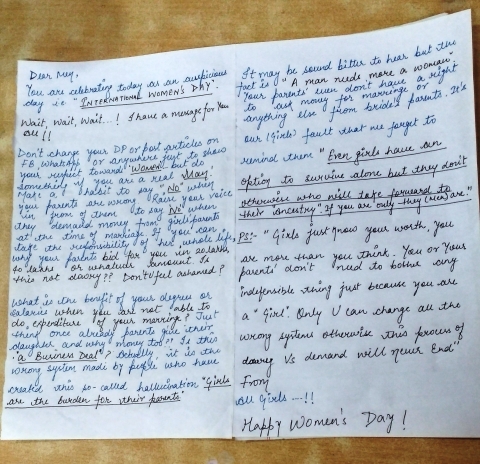 Dear Men,
You are celebrating today as an auspicious
day i.e "INTERNATIONAL WOMEN'S DAY".
Wait, Wait, Wait...! I have a message for You
all!!
Don't change your DP or post articles on
FB, Whatsapp or anywhere just to show
your respect toward "Women" but do
something if you are a real Man!
Make a habit to say "NO" when
your parents are wrong. Raise your voice
in front of them to say "NO" when
they demand money from girl's parents
at the time of marriage. If you can
take the responsibility of her whole life,
why your parents bid for you in dollars,
to learn or whatever amount. Is
this not dowry?? Don't U feel ashamed?
What is the benefit of your degree or
salaries when you are not able to
do expenditure of your marriage? Just
think once already parents give their
daughter and why money too?! Is this
"a Business Deal"? Actually, it is the
wrong system made by people who have
created this so-called hallucination "Girls
are the burden for their parents"
It may be sound bitter to hear but the
fact is "A man needs more a woman"
Your parents even don't have a right
to ask money for marriage or
anything else from bride's parents. It's
our (Girls) fault that we forget to
remind them "Even girls have an
option to survive alone but they don't
otherwise who will take forward to
their ancestry". If you are only they (men) are"
PS:- "Girls just know your worth, you
are more than you think. You or Your
parents don't need to bother any
indefensible thing just because you are
a "Girl". Only U can change all the
wrong systems otherwise this process of
dowry Vs demand will never End"
From
All Girls ....!!
Happy Women's Day!